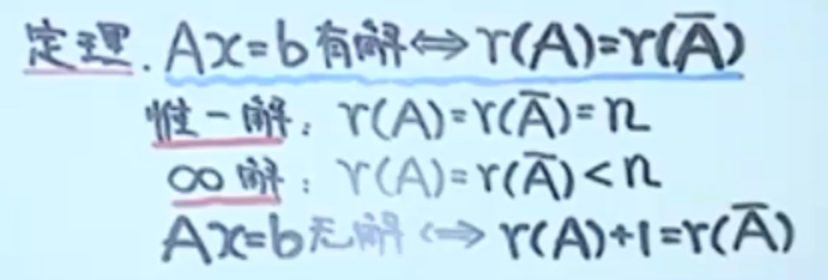 定理. Ax=b有解⇔r(A)=r(A̅)
惟一解: r(A)=r(A̅)=n
∞解: r(A)=r(A̅)<n
Ax=b无解⇔r(A)+1=r(A̅)